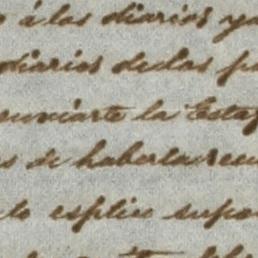 o á los diarios ya
diarios de las p
enviarte la Esta
s de haberla recu
to esplico supo